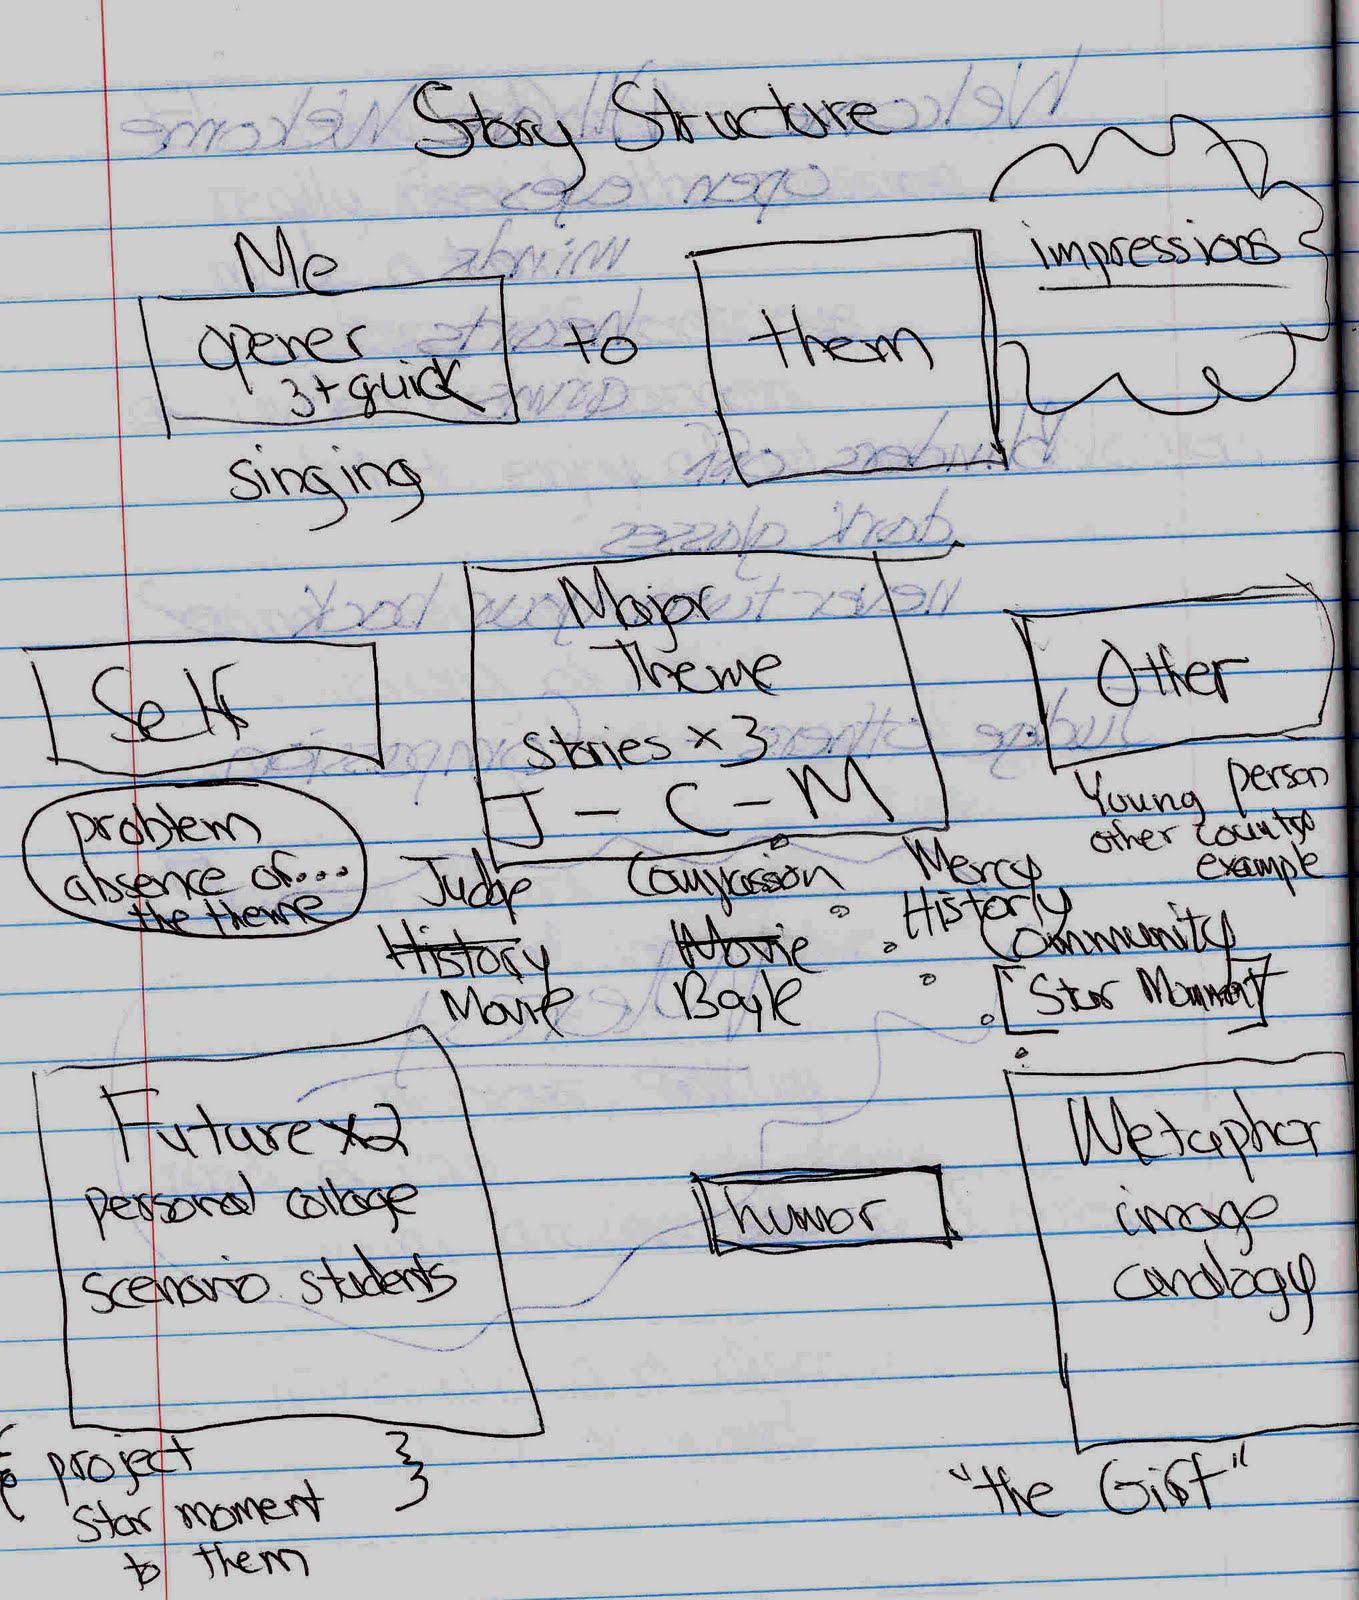 Story Structure
Me
opener
3+ quick
singing
to
them
impressions
Self
problem
absence of...
the theme
Major
Theme
stories x 3
J - C - M
Judge
History
Movie
Compassion
Movie
Boyle
Mercy
Historly
Community
[Star Moment]
Other
Young person
other country
example
Future x2
personal collage
scenario students
{ project }
star moment
to them
humor
Metaphor
image
analogy
"the Gift"